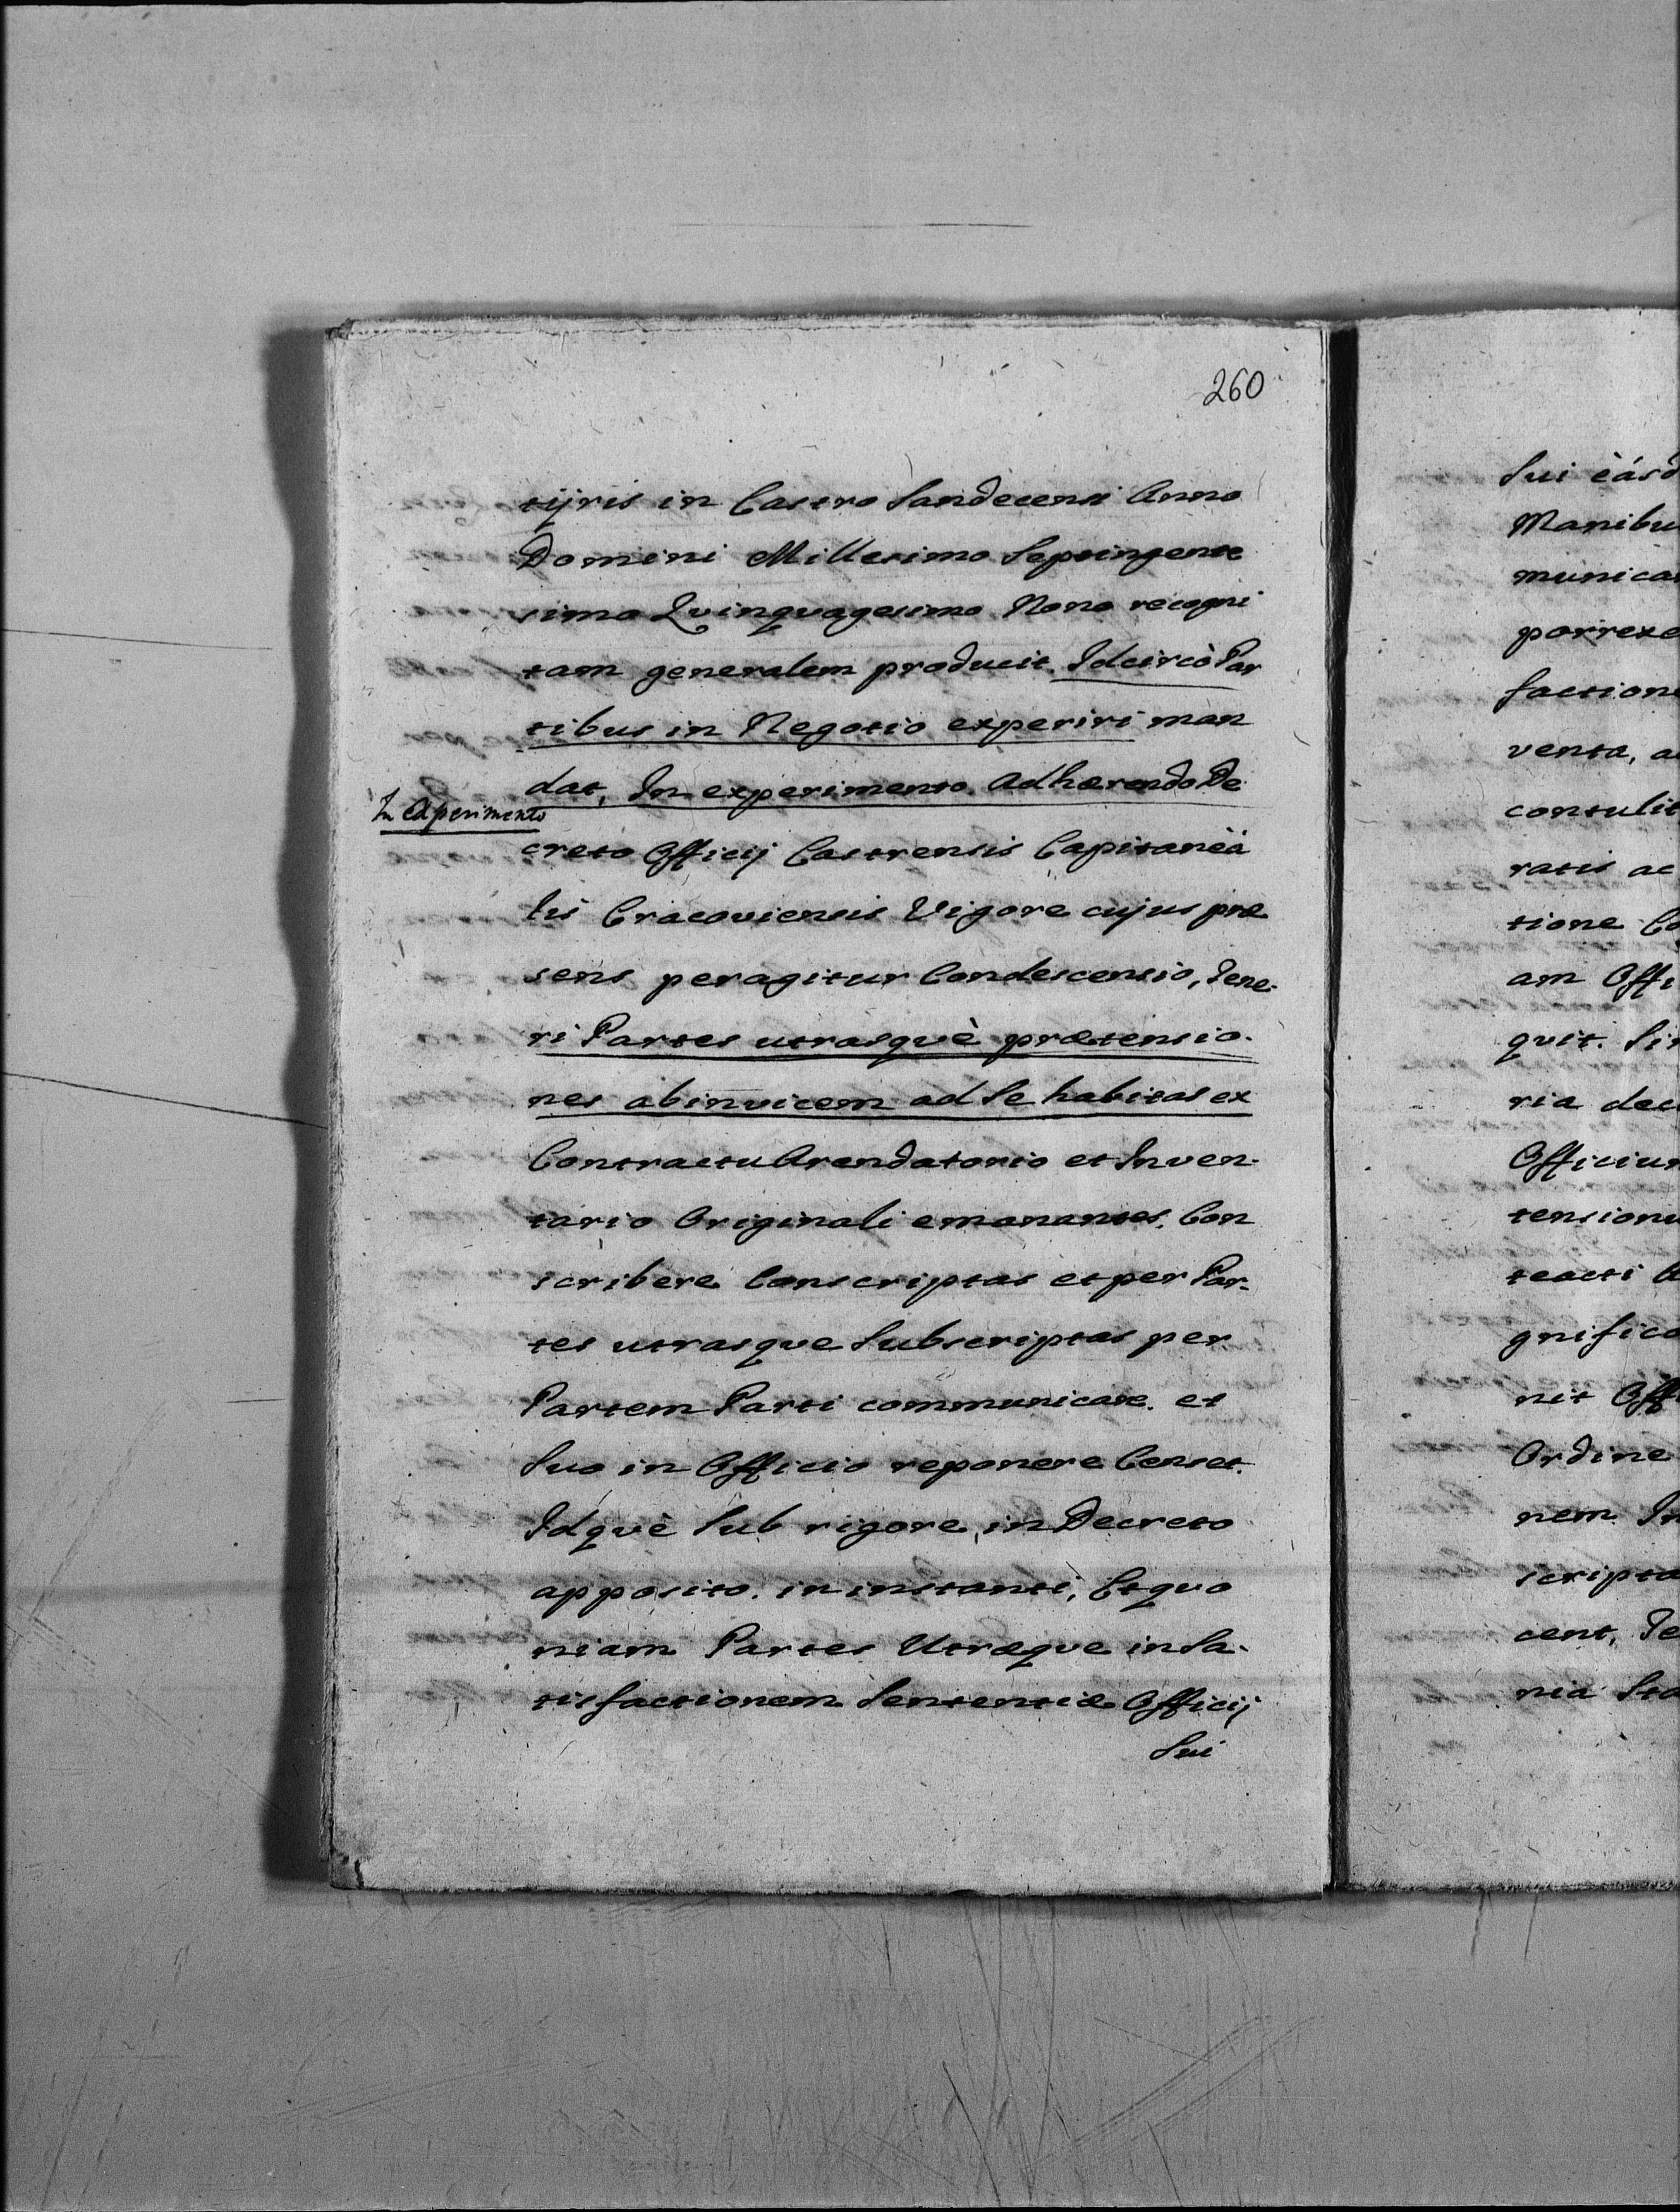 260
tijris in Castro Sandecensi Anno
Domini Millesimo Septingente
simo Qvinqvagesimo Nono recogni
tam generalem producit Idcircò Par
tibus in Negotio experiri man
dat, In experimento Adhærendo De
In Experimento
creto Officij Castrensis Capitaneá
lis Cracoviensis Vigore cujus præ
sens peragitur Condescensio, Tene-
ri Partes utrasqvè prætensio-
nes abinvicem ad Se habitas ex
Contractu Arendatorio et Inven-
tario Originali emanantes. Con
scribere Conscriptas et per Par-
tes utrasqve Subscriptas per
Partem Parti communicare. et
Suo in Officio reponere Censet.
Idqvè Sub rigore in Decreto
apposito. in instanti, Etqvo
niam Partes Utræqve in Sa-
tisfactionem Sententiæ Officij
Sui
Sui èásd
Manibu
munica
porrexe
faction
venta, a
contulit
ratis ac
tione Co
am Offi
qvit. Si
ria dec
Officiu
tension
teacti
gnifica
nit Offi
Ordine
nem In
scripta
cent, Te
nia Sta